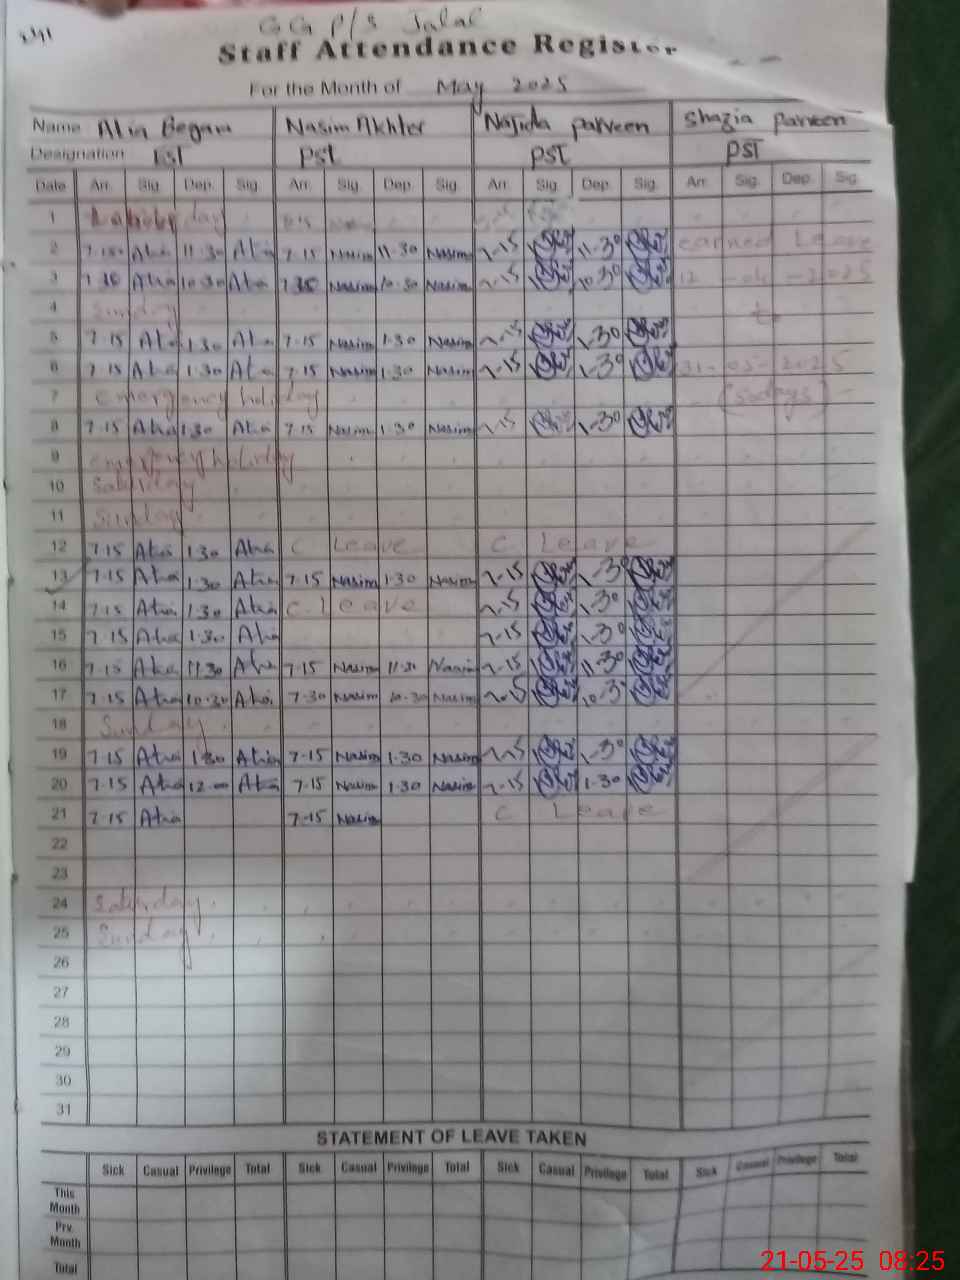 GG P/S Jalal
Staff Attendance Register
For the Month of May 2025
Name Atia Begam Nasim Akhter Najida parveen Shazia parveen
Designation PST PST PST
Date Arr. Sig. Dep. Sig. Arr. Sig. Dep. Sig. Arr. Sig. Dep. Sig. Arr. Sig. Dep. Sig.
1
2 7.15 Atia 11.30 Atia 7.15 Nasim 11-30 Nasim 7-15 11-30 earned Leave
3 7.30 Atia 10.30 Atia 7.30 Nasim 10.30 Nasim 10.30 12-04-2025
4 Sunday to
5 7.15 Atia 1.30 Atia 7.15 Nasim 1.30 Nasim 7-15 1-30
6 7.15 Atia 1.30 Atia 7.15 Nasim 1.30 Nasim 7-15 1-30 31-05-2025
7 emergency holiday (50days)
8 7.15 Atia 1.30 Atia 7.15 Nasim 1.30 Nasim 7-15 1-30
9 emergency holiday
10 Saturday
11 Sunday
12 7.15 Atia 1.30 Atia C Leave C Leave
13 7.15 Atia 1.30 Atia 7.15 Nasim 1.30 Nasim 7-15 1-30
14 7.15 Atia 1.30 Atia C. leave 7-15 1-30
15 7.15 Atia 1.30 Atia 7-15 1-30
16 7.15 Atia 11.30 Atia 7.15 Nasim 11.30 Nasim 7-15 11-30
17 7.15 Atia 10.30 Atia 7.30 Nasim 10.30 Nasim 10.30
18 Sunday
19 7.15 Atia 1.30 Atia 7.15 Nasim 1.30 Nasim 7-15 1-30
20 7.15 Atia 12.00 Atia 7.15 Nasim 1.30 Nasim 7-15 1-30
21 7.15 Atia 7.15 Nasim C Leave
22
23
24 Saturday
25 Sunday
26
27
28
29
30
31
STATEMENT OF LEAVE TAKEN
Sick Casual Privilege Total Sick Casual Privilege Total Sick Casual Privilege Total Sick Casual Privilege Total
This Month
Prv. Month
Total
21-05-25 08:25